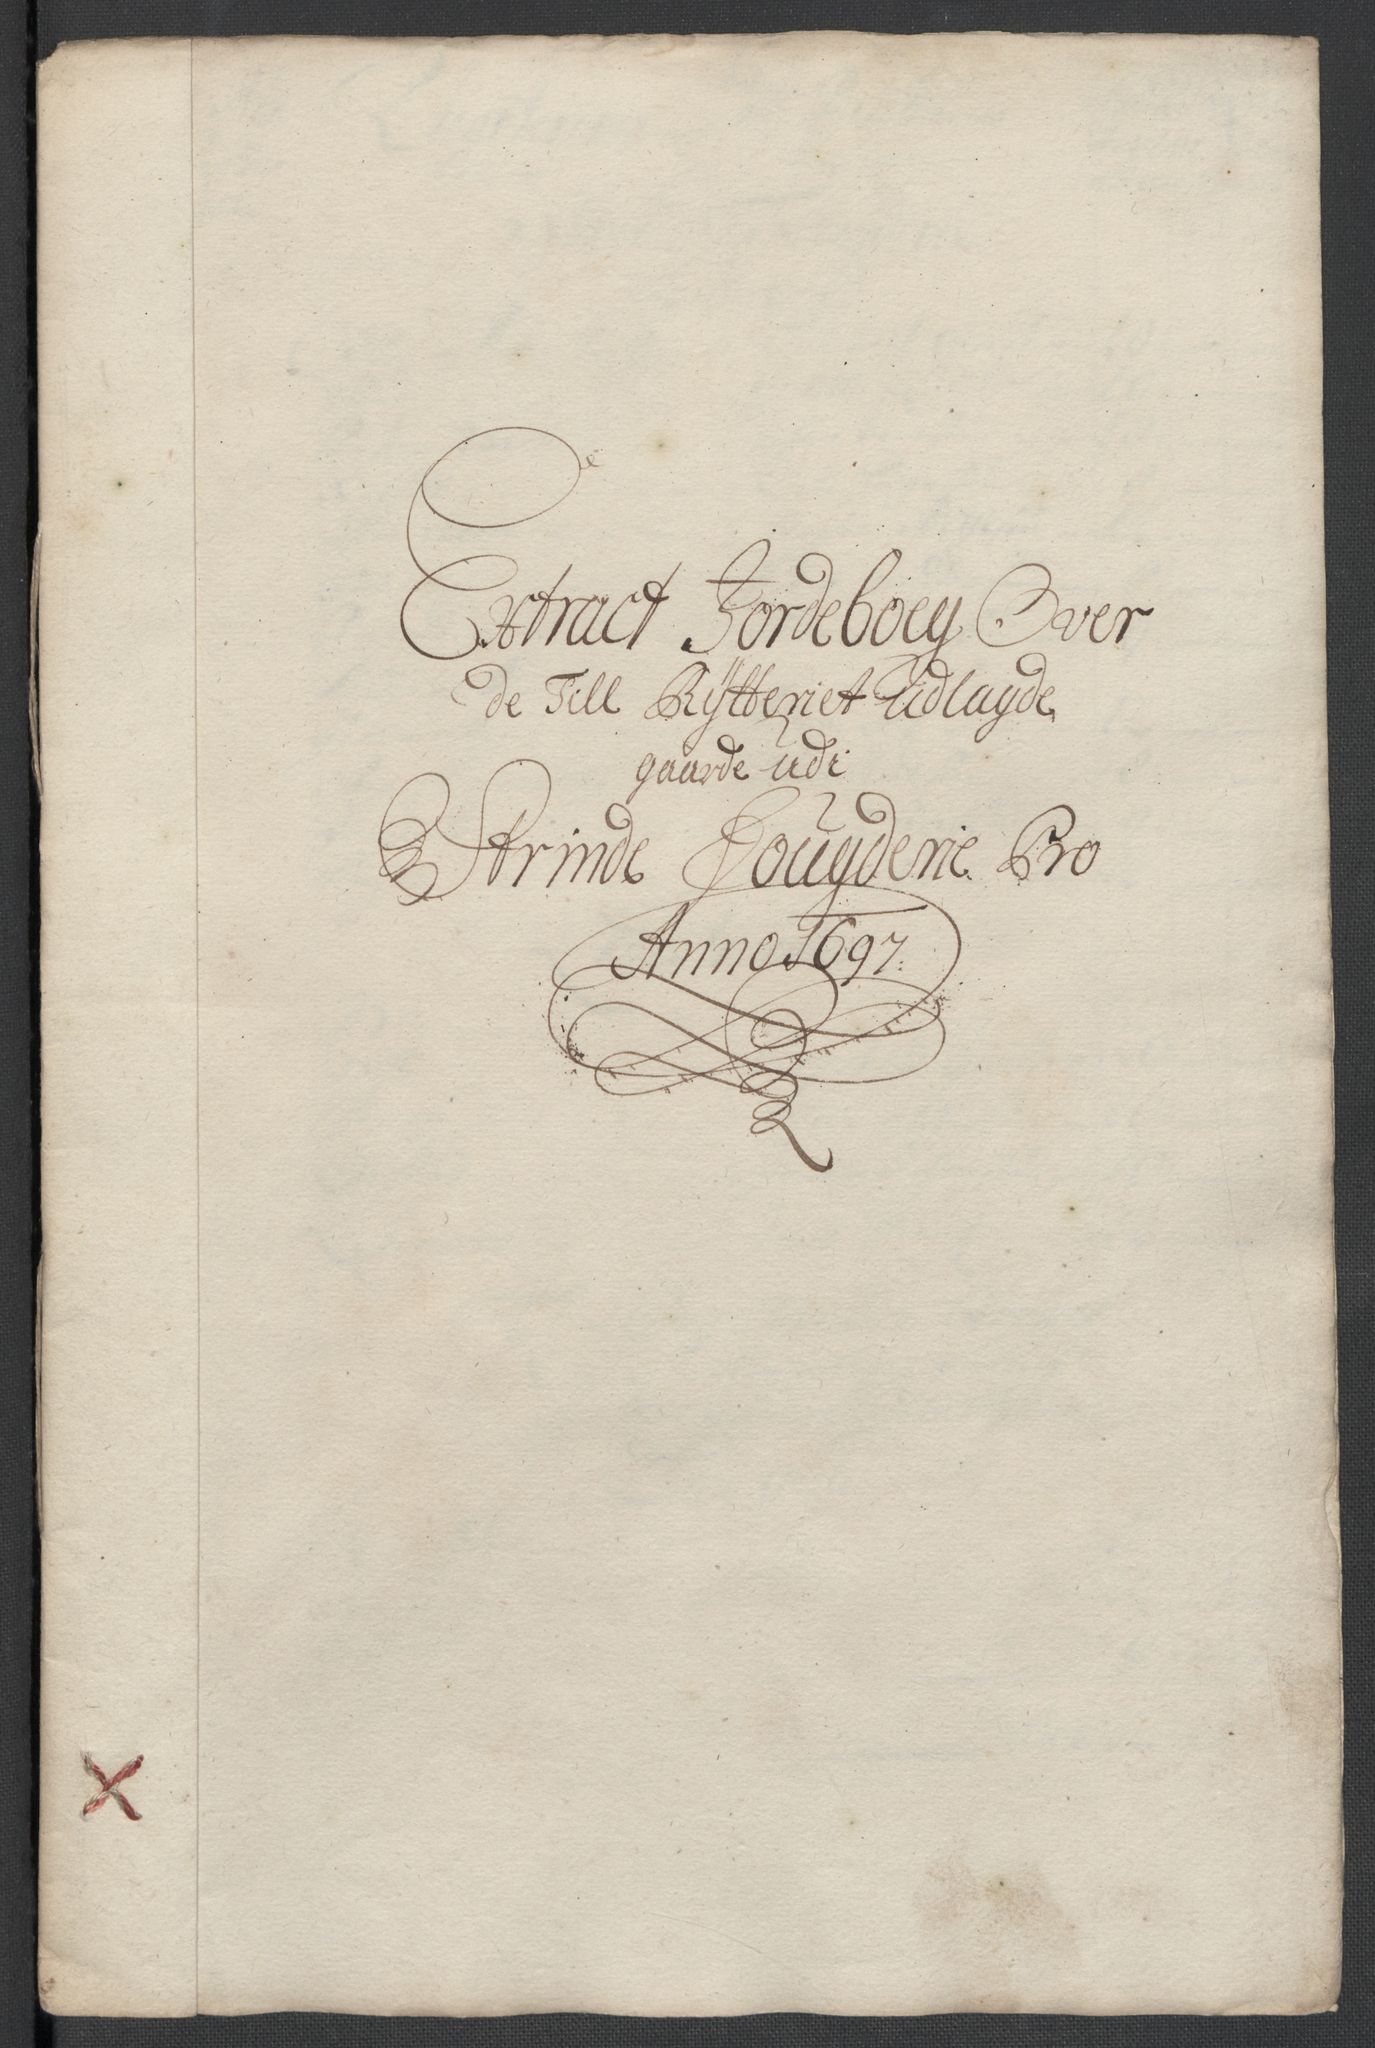 Extract Jordeboeg Over
de Till Rÿtteriet Udlagde
gaarde udi
Strinde Fougderie Pro
Anno 1697.